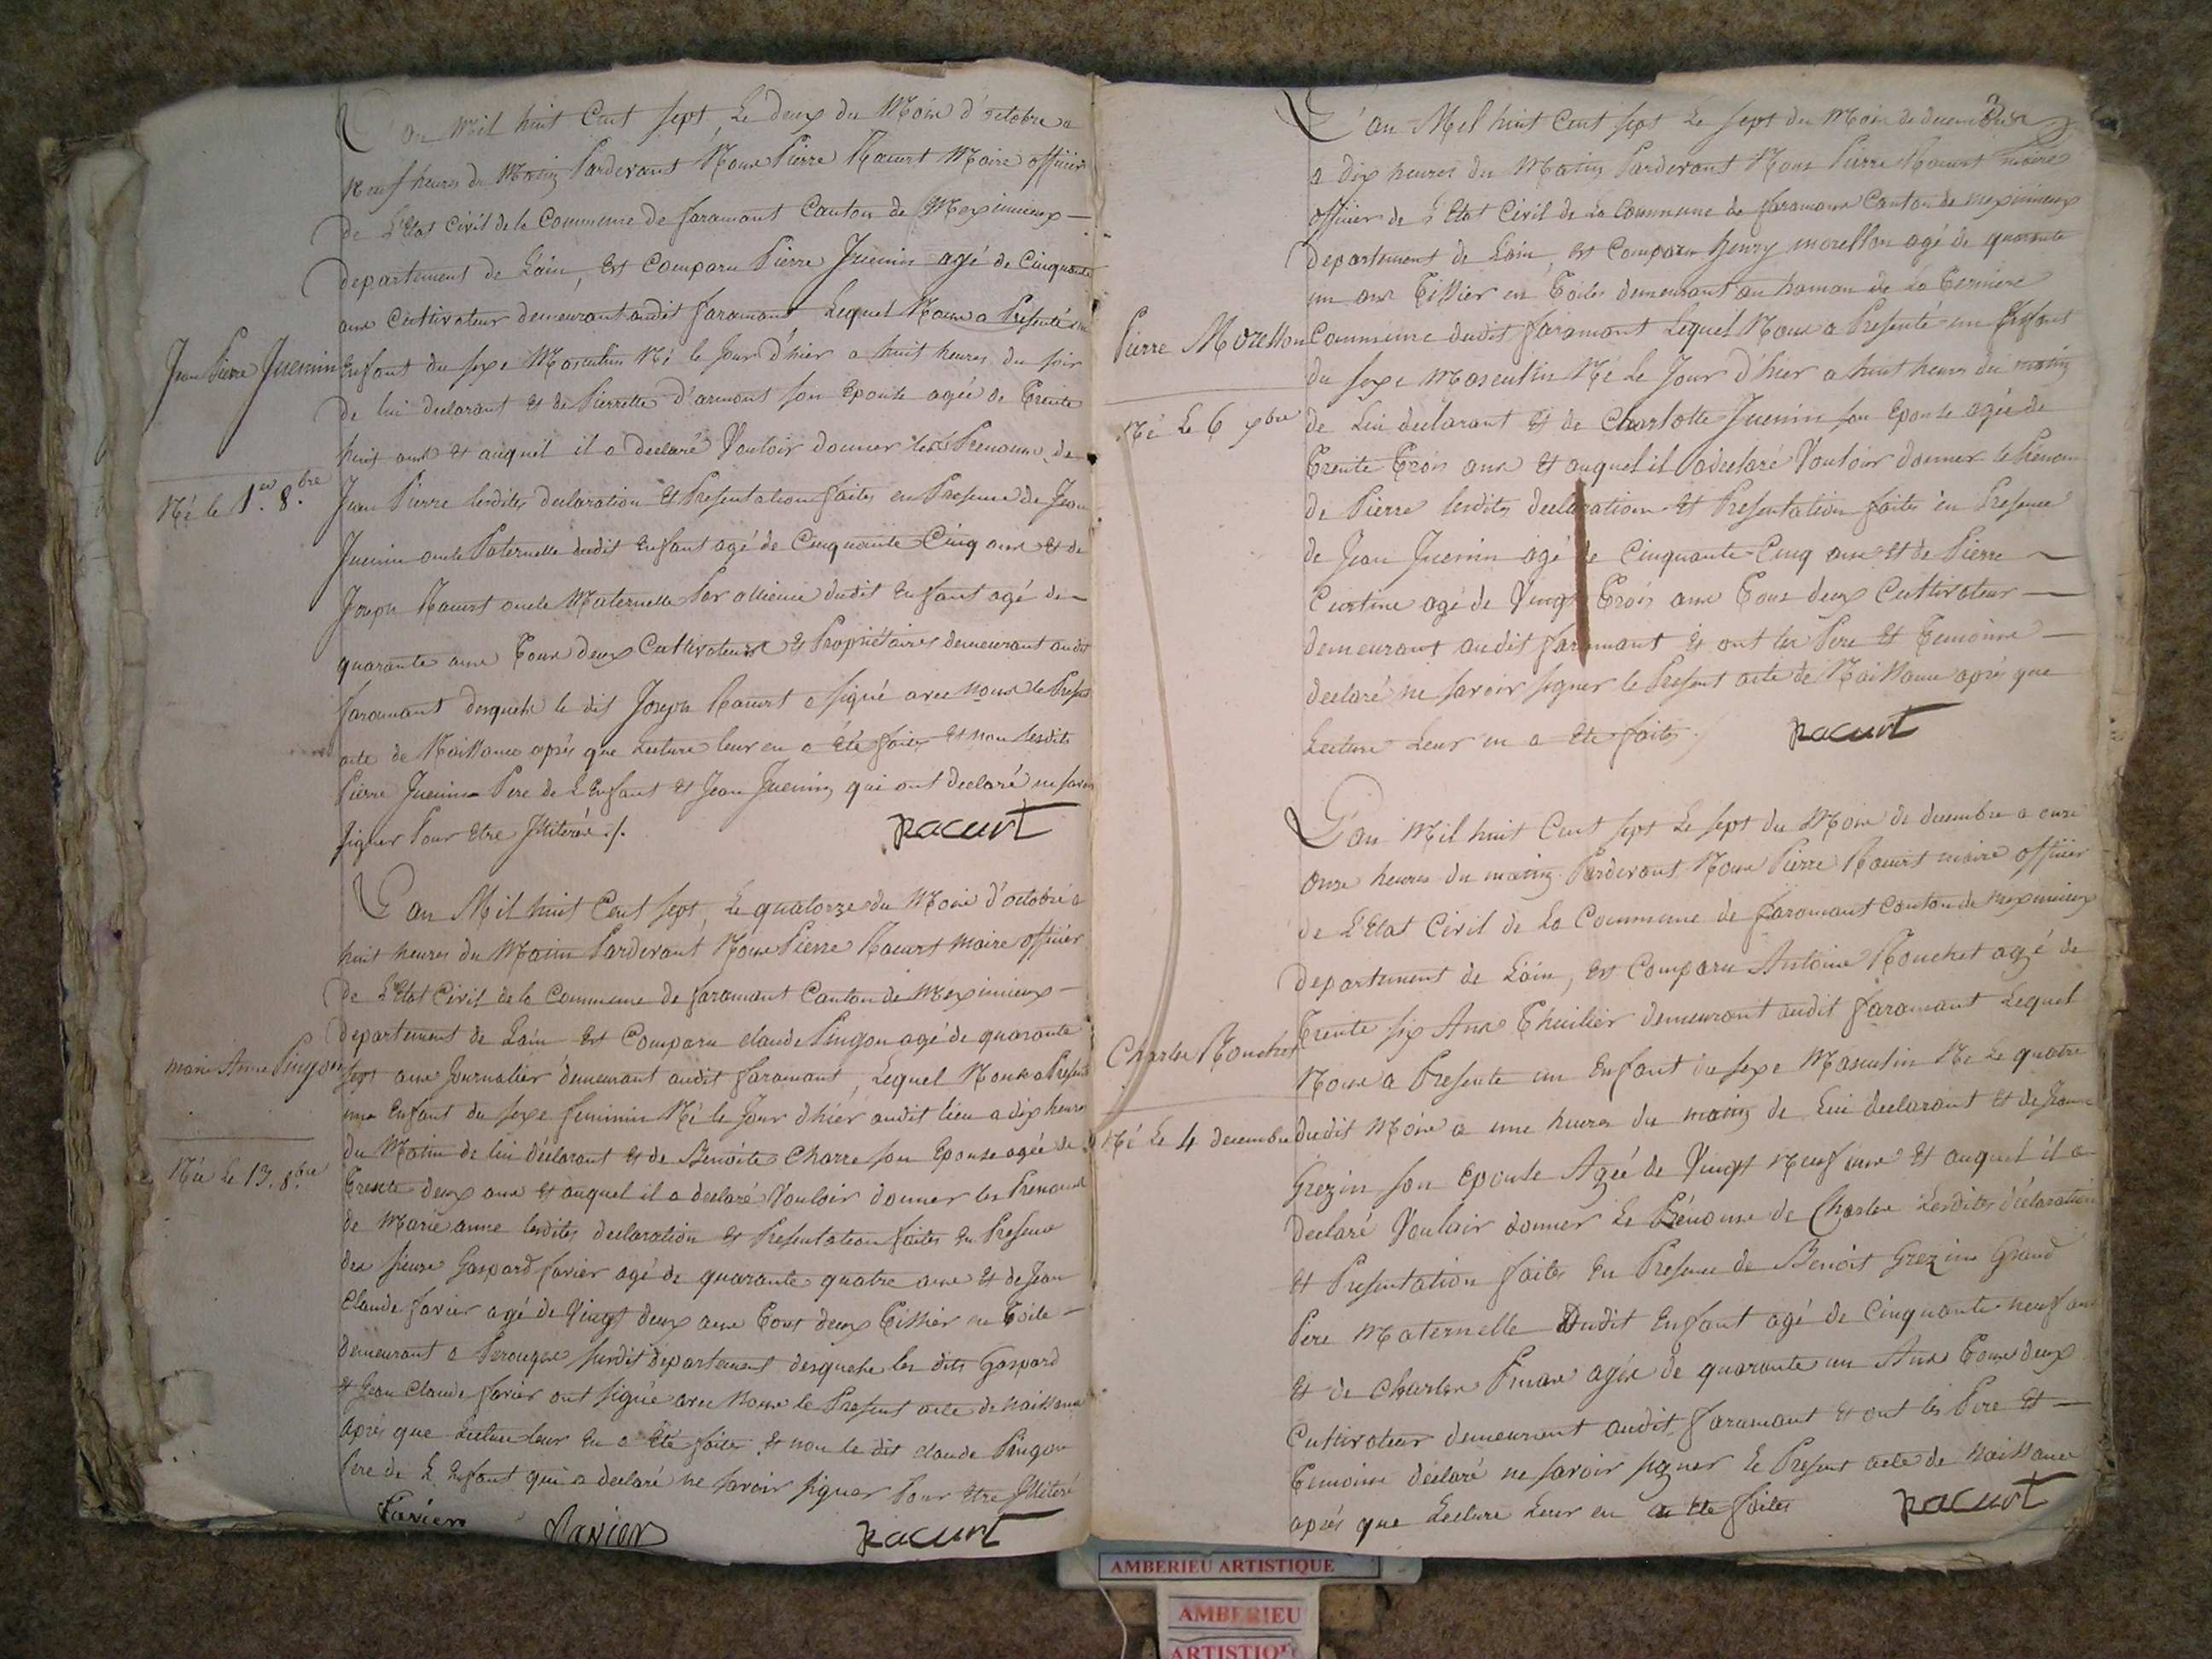 L'an Mil huit Cent sept Le deux du Mois d'octobre a
Neuf heures du Matin Pardevant Nous Pierre Racurt Maire officier
de L'Etat Civil de la Commune de faramant Canton de Meximieux
departement de L'ain, Est Comparu Pierre Juenin agé de Cinquante
ans Cultivateur demeurant audit faramant Lequel Nous a Presenté un
Jean Pierre Juenin
Enfant du sexe Masculin Né le Jour d'hier a huit heures du soir
de lui declarant Et de Pierrette d'armont son Epouse agée de Trente
huit ans Et auquel il a declaré Vouloir donner les Prenoms de
Né le 1er. 8.bre
Jean Pierre lesdites declaration Et Presentation faites en Presence de Jean
Juenin oncle Paternelle dudit Enfant agé de Cinquante Cinq ans Et de
Joseph Racurt oncle Maternelle Par allience dudit Enfant agé de
quarante ans Tous deux Cultivateurs Et Propriétaires demeurant audit
faramant desquels le dit Joseph Racurt a signé avec nous le Present
acte de Naissance après que Lecture leur en a Eté faites Et non lesdits
Pierre Juenin Pere de L'Enfant Et Jean Juenin qui ont declaré ne savoir
signer Pour Etre Illiterés ./.
Racurt
L'an Mil huit Cent sept, Le quatorze du Mois d'octobre a
huit heures du Matin Pardevant Nous Pierre Racurt maire officier
de L'Etat Civil de la Commune de faramant Canton de Meximieux
departement de L'ain Est Comparu claude Pingon agé de quarante
marie Anne Pingon
sept ans Journalier demeurant audit faramant, Lequel Nous a Presenté
une Enfant du sexe feminin Né le Jour d'hier audit lieu a dix heures
du Matin de lui declarant Et de Benoite Charre son Epouse agée de
Née le 13. 8.bre
Trente deux ans Et auquel il a declaré Vouloir donner les Prenoms
de Marie anne lesdites declaration Et Presentation faites En Presence
des sieurs Gaspard favier agé de quarante quatre ans Et de Jean
Claude favier agé de Vingt deux ans Tous deux Tissier en Toile
demeurant a Perouges susdit departement desquels les dits Gaspard
Et Jean Claude favier ont signée avec Nous le Present acte de naissance
après que Lecture leur En a Eté faite Et non le dit claude Pingon
Pere de L'Enfant qui a declaré ne savoir signer Pour Etre Illiteré
Favier Favier Racurt
3
L'an Mil huit Cent sept Le sept du Mois de decembre
a dix heures du Matin Pardevant Nous Pierre Racurt maire
officier de L'Etat Civil de La Commune de faramant Canton de meximieux
departement de L'ain, Est Comparu henry morellon agé de quarante
un ans Tissier en Toiles demeurant au hamau de La
Pierre Morellon
Commune dudit faramant Lequel Nous a Presenté un Enfant
du sexe Masculin Né Le Jour d'hier a huit heures du matin
Né Le 6 xbre
de Lui declarant Et de Charlotte Juenin son Epouse agée de
Trente Trois ans Et auquel il a declaré Vouloir donner le Prenom
de Pierre lesdites declaration Et Presentation faites en Presence
de Jean Juenin agé de Cinquante Cinq ans Et de Pierre
agé de Vingt Trois ans Tous deux Cultivateur
demeurant audit faramant Et ont les Pere Et Temoins
declaré ne savoir signer le Present acte de Naissance après que
Lecture Leur en a Eté faites ./
Racurt
L'an Mil huit Cent sept Le sept du Mois de decembre a onze
onze heures du matin Pardevant Nous Pierre Racurt maire officier
de L'Etat Civil de La Commune de faramant Canton de meximieux
departement de L'ain, Est Comparu Antoine Mouchet agé de
Trente six Ans Thuilier demeurant audit faramant Lequel
Charles Mouchet
Nous a Presente un Enfant du sexe Masculin Né Le quatre
Né Le 4 decembre
dudit Mois a une heures du matin de Lui declarant Et de Jeanne
Grezin son Epouse Agée de Vingt Neuf ans Et auquel il a
declaré Vouloir donner Le Prénoms de Charles Lesdites déclaration
Et Presentation faites En Presence de Benoit Grezin Grand
Pere Maternelle Dudit Enfant agé de Cinquante neuf ans
Et de Charles agée de quarante un Ans Tous deux
Cultivateur demeurant audit faramant Et ont les Pere Et
Temoins declaré ne savoir signer le Present acte de naissance
après que Lecture Leur en a Eté faites
Racurt
AMBERIEU ARTISTIQUE
AMBERIEU
ARTISTIQUE